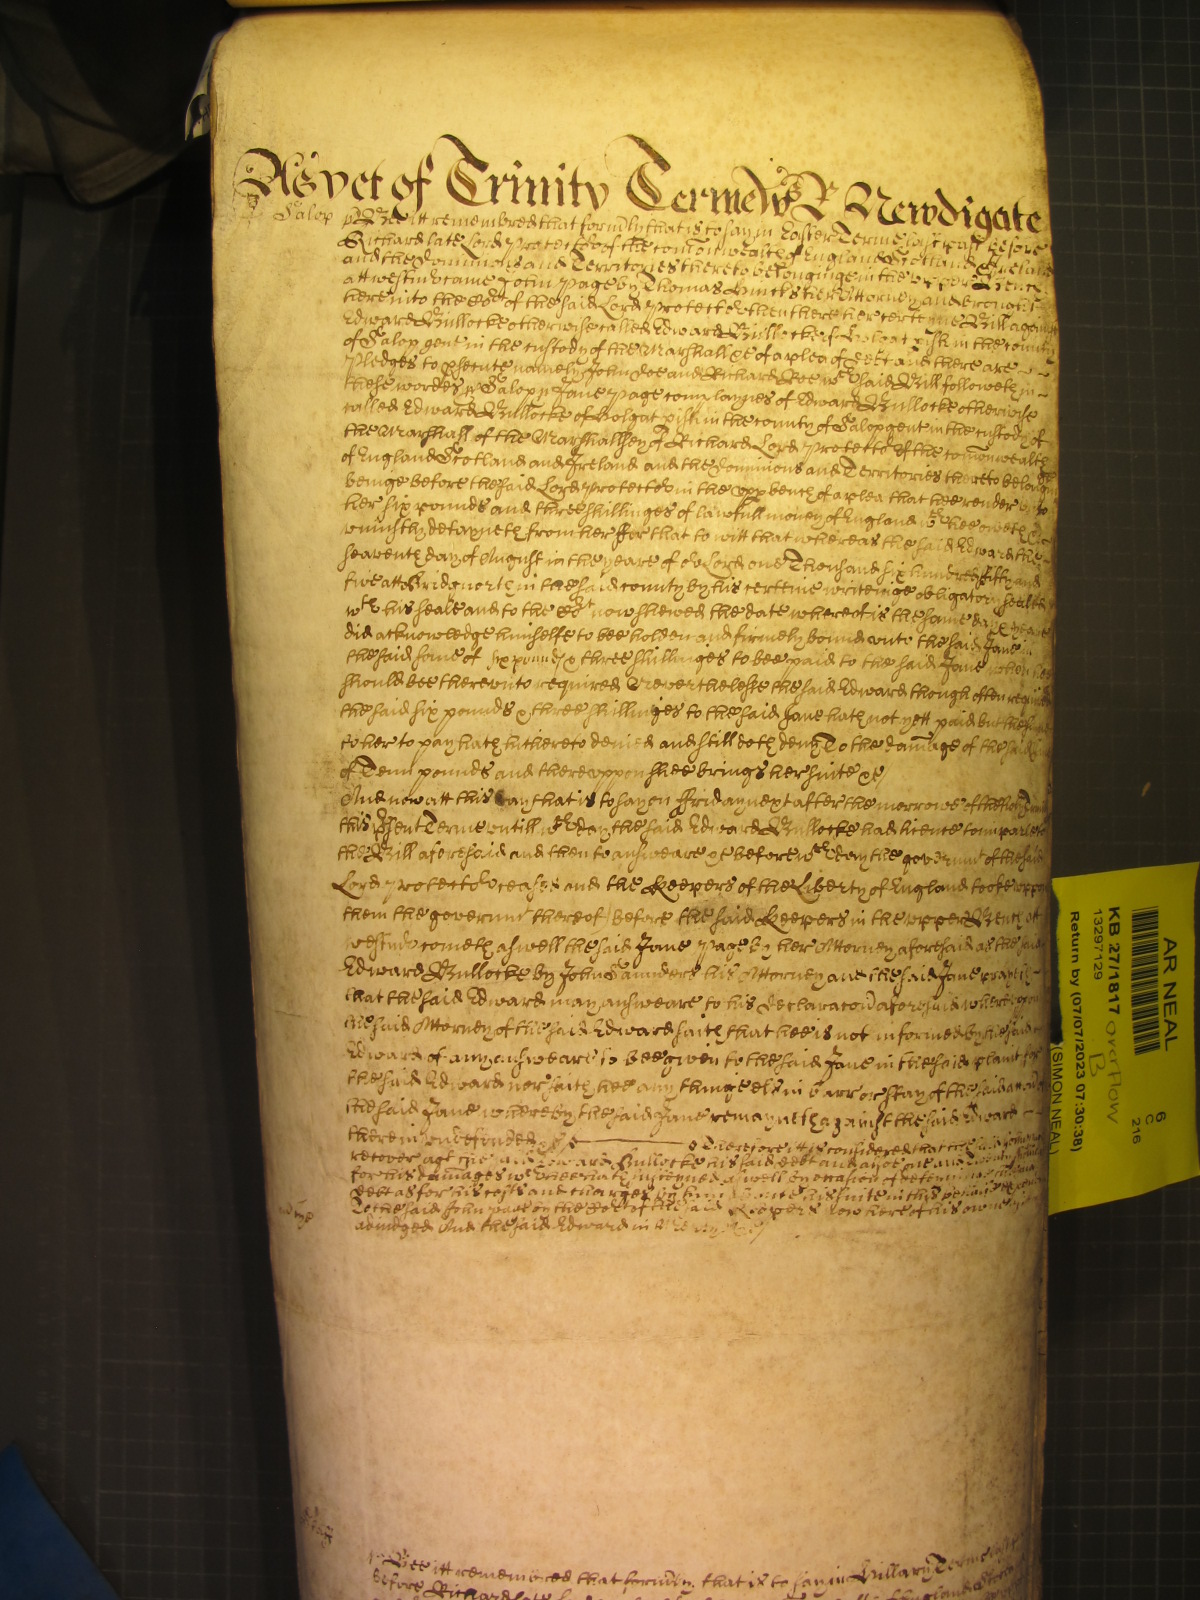 As yet of Trinity Terme Wtes R Newdigate
Salop ss Bee itt remembred that formly that is to say in Easter Terme last past before
Richard late Lord Protector of the comon wealth of England Scotland & Ireland
and the Dominions and Territories thereto belonginge in the upper Bench
att Westm came Jane Page by Thomas her Attorney and brought
here into the Cort of the said Lord Protector then there her certeyne Bill against
Edward Bullocke otherwise called Edward Bullocke of Holgat pish in the county
of Salop gent in the custody of the Marshall &c of a plea of debt and there are
Pledges to psecute namely John Doe and Richard Roe wch said Bill followeth in
these wordes ss Salop ss Jane Page complaynes of Edward Bullocke otherwise
called Edward Bullocke of Holgat pish in the county of Salop gent in the custody of
the Marshall of the Marshallsey of Richard Lord Protector of the comonwealth
of England Scotland and Ireland and the Dominions and Territories thereto belonginge
beinge before the said Lord Protector in the upp bench of a plea that hee render unto
her six pounds and three shillinges of lawfull money of England wch hee oweth &
uniustly detayneth from her For that to witt that whereas the said Edward the
seaventh day of August in the yeare of or Lord one Thousand six hundred fifty and
five att Bridgnorth in the said county by his certeine writeinge obligatory sealed
wth his seale and to the Cort now shewed the date whereof is the same day & yeare
did acknowledge himselfe to bee holden and firmely bound unto the said Jane in
the said some of six pounds & three shillinges to bee paid to the said Jane when hee
should bee thereunto required Neverthelesse the said Edward though often required
the said six pounds & three shillinges to the said Jane hath not yett paid but the same
to her to pay hath hithereto denied and still doth deny To the damage of the said Jane
of Tenn pounds and thereuppon shee brings her suite &c
And now att this day that is to say on Friday next after the morrowe of the
this psent Terme untill wch day the said Edward Bullocke had licence to imparle to
the Bill aforesaid and then to answeare &c before wch day the govermt of the said
Lord Protector ceased and the Keepers of the Liberty of England tooke uppon
them the govermt thereof before the said Keepers in the upper Bench att
Westmr cometh aswell the said Jane Page by her Attorney aforesaid as the said
Edward Bullocke by John Saunders his Attorney and the said Jane prayeth
that the said Edward may answeare to his Declaracon aforesaid whereuppon
the said Attorney of the said Edward saith that hee is not informed by the said
Edward of any answeare to bee given to the said Jane in the said plaint for
the said Edward nor saith hee any thinge els in barr or stay of the said accon of
the said Jane whereby the said Jane remayneth against the said Edward
therein undefended &c Therefore itt is considered that the said
recover agt the said Edward Bullocke his said debt and alsoe
for his damages wch hee hath susteyned aswell by occasion of deteyninge
debt as for his costs and charges by him about his suite in this behalfe
to the said John page by the Cort of the said Keepers now here of his owne
adiudged And the said Edward in Mercy &c
Bee itt remembred that formly that is to say in Hillary Terme last
before Richard late of England

AR NEAL
KB 27/1817 overflow
B
13297129
Return by (07/07/2023 07:30:38)
(SIMON NEAL)
6
C
216